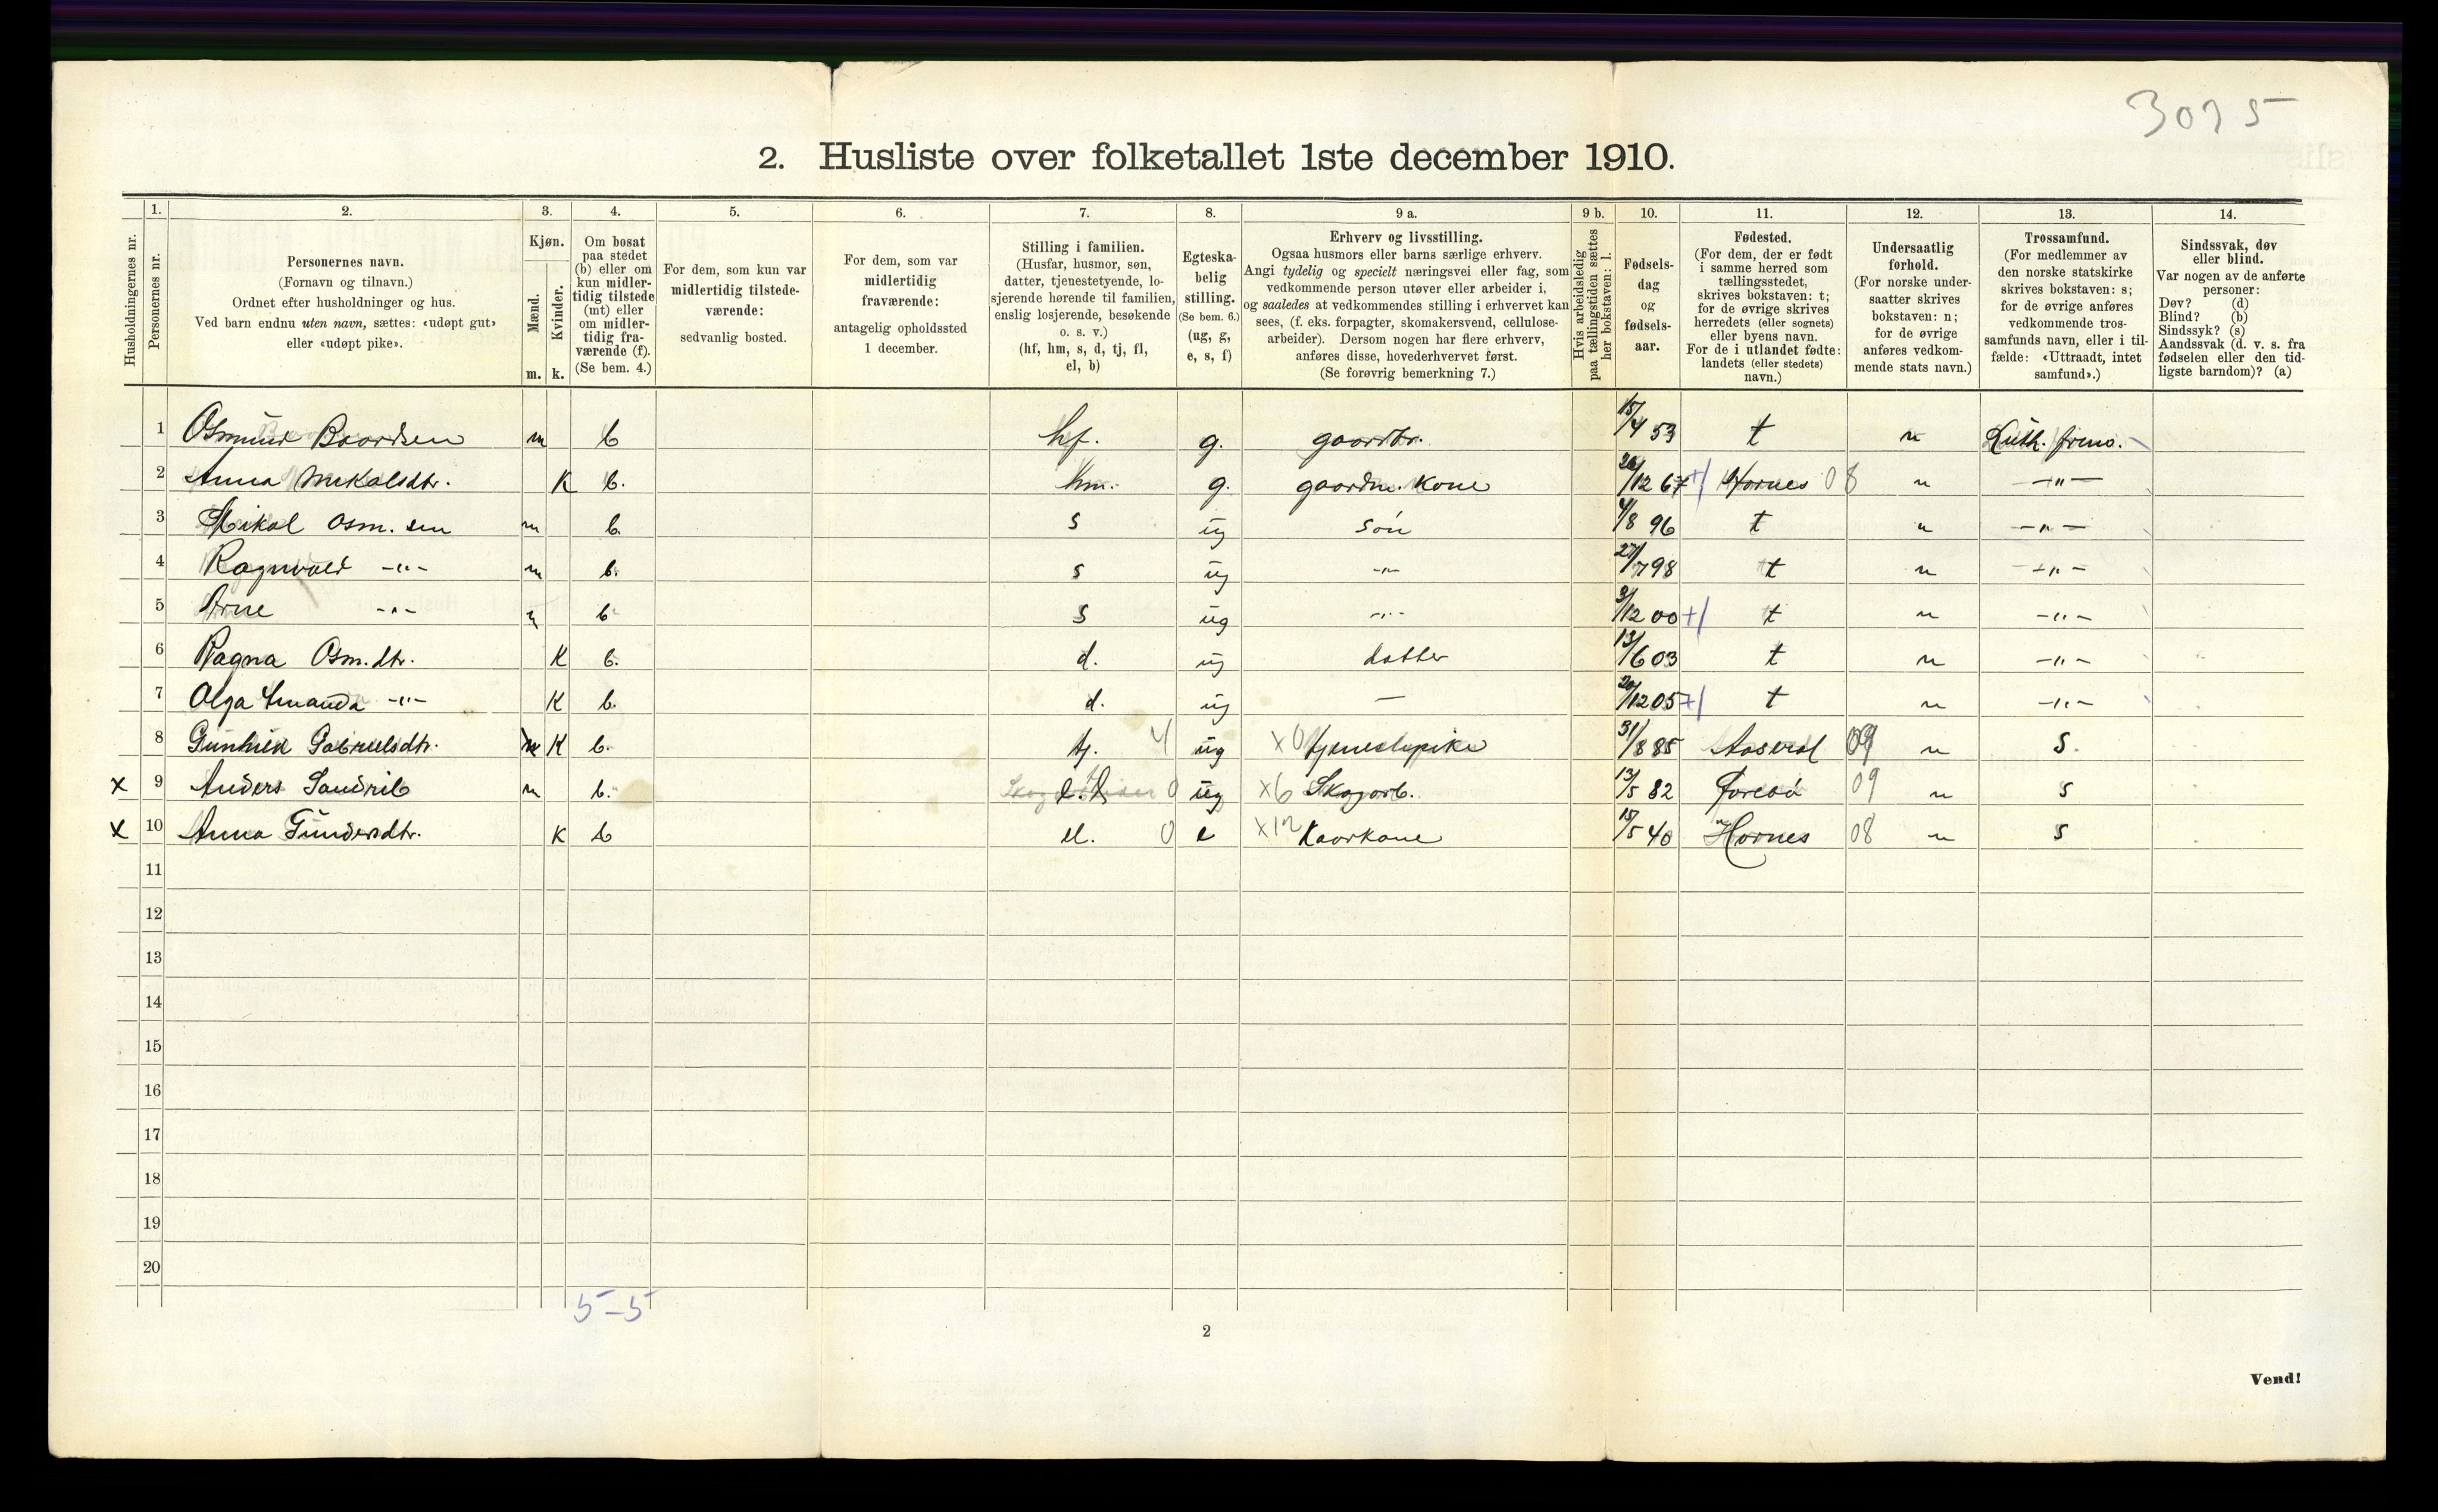 3075
2. Husliste over folketallet 1ste december 1910.
Husholdningernes nr.
1. Personernes nr.
2. Personernes navn. (Fornavn og tilnavn.) Ordnet efter husholdninger og hus. Ved barn endnu uten navn, sættes: «udøpt gut» eller «udøpt pike».
3. Kjøn. Mænd. m. Kvinder. k.
4. Om bosat paa stedet (b) eller om kun midlertidig tilstede (mt) eller om midlertidig fraværende (f). (Se bem. 4.)
5. For dem, som kun var midlertidig tilstedeværende: sedvanlig bosted.
6. For dem, som var midlertidig fraværende: antagelig opholdssted 1 december.
7. Stilling i familien. (Husfar, husmor, søn, datter, tjenestetyende, losjerende hørende til familien, enslig losjerende, besøkende o. s. v.) (hf, hm, s, d, tj, fl, el, b)
8. Egteskabelig stilling. (Se bem. 6.) (ug, g, e, s, f)
9 a. Erhverv og livsstilling. Ogsaa husmors eller barns særlige erhverv. Angi tydelig og specielt næringsvei eller fag, som vedkommende person utøver eller arbeider i, og saaledes at vedkommendes stilling i erhvervet kan sees, (f. eks. forpagter, skomakersvend, cellulosearbeider). Dersom nogen har flere erhverv, anføres disse, hovederhvervet først. (Se forøvrig bemerkning 7.)
9 b. Hvis arbeidsledig paa tællingstiden sættes her bokstaven: l.
10. Fødselsdag og fødselsaar.
11. Fødested. (For dem, der er født i samme herred som tællingsstedet, skrives bokstaven: t; for de øvrige skrives herredets (eller sognets) eller byens navn. For de i utlandet fødte: landets (eller stedets) navn.)
12. Undersaatlig forhold. (For norske undersaatter skrives bokstaven: n; for de øvrige anføres vedkommende stats navn.)
13. Trossamfund. (For medlemmer av den norske statskirke skrives bokstaven: s; for de øvrige anføres vedkommende trossamfunds navn, eller i tilfælde: «Uttraadt, intet samfund».)
14. Sindssvak, døv eller blind. Var nogen av de anførte personer: Døv? (d) Blind? (b) Sindssyk? (s) Aandssvak (d. v. s. fra fødselen eller den tidligste barndom)? (a)
1 Osmund Baardsen m b hf. g. gaardbr. 15/4 53 t n Luth. frim.
2 Anna Mikalsdtr. K b. hm. g. gaardm. Kone 26/12 67 Hornes 08 n -"-
3 Mikal Osm. sen m b. s ug søn 4/8 96 t n -"-
4 Ragnvald -"- m b. s ug -"- 27/7 98 t n -"-
5 Arne -"- m b. s ug -"- 3/12 00 t n -"-
6 Ragna Osm. dtr. K b. d. ug datter 13/6 03 t n -"-
7 Olga Amanda -"- K b. d. ug — 20/12 05 t n -"-
8 Gunhild Gabrielsdtr. K b. tj. 4 ug x0 tjenestepike 31/8 85 Aaseral 09 n s.
x 9 Anders Sandrib m b. 0 ug x6 Skogarb. 13/5 82 09 n s
x 10 Anna Gundersdtr. K b el. 0 e x12 Kaarkone 15/5 40 Hornes 08 n s
11
12
13
14
15
16
17
18
19
20
5-5
2
Vend!